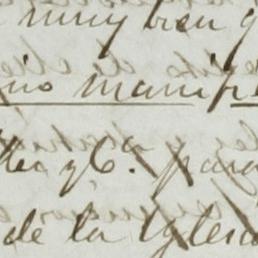 muy bien q
no manif
les y C.ª para
de la Iglesia